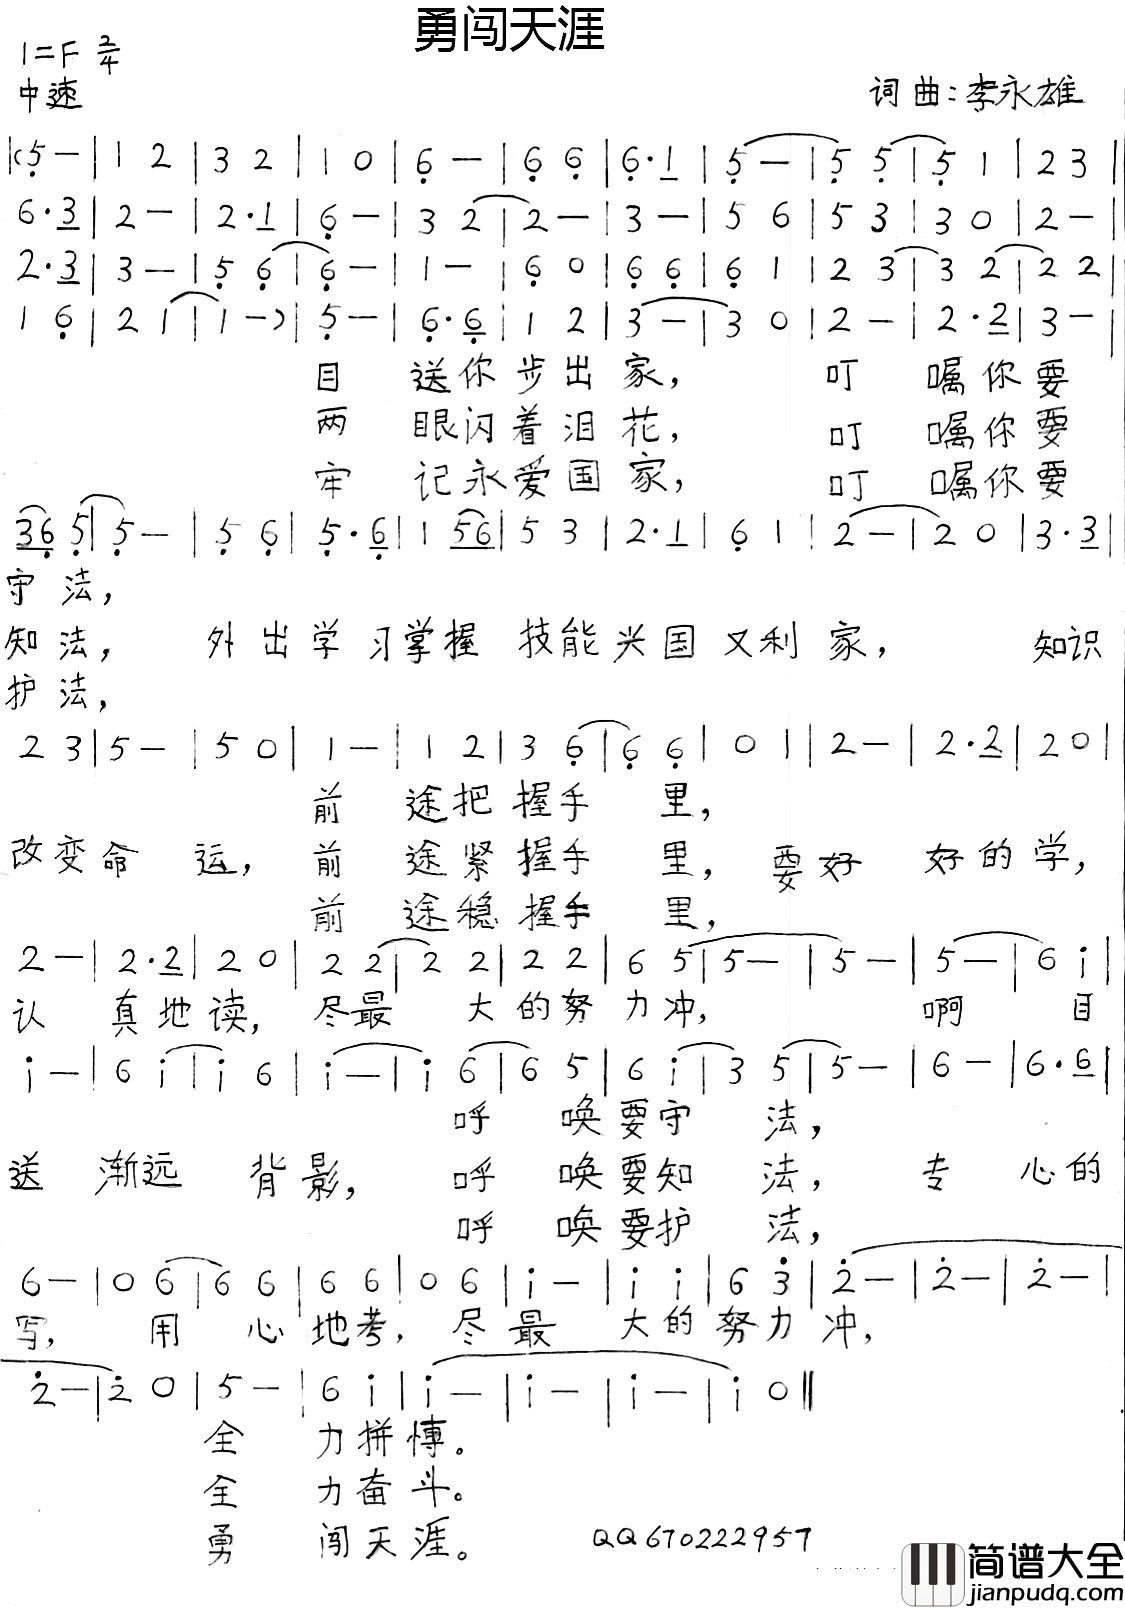 勇闯天涯
1=F 2/4
中速
词曲:李永雄
|(5̣ — | 1 2 | 3 2 | 1 0 | 6̣ — | 6̣ 6̣ | 6̣·1 | 5̣ — | 5̣ 5̣ | 5̣ 1 | 2 3 |
6·3 | 2 — | 2·1 | 6̣ — | 3 2 | 2 — | 3 — | 5 6 | 5 3 | 3 0 | 2 — |
2·3 | 3 — | 5̣ 6̣ | 6̣ — | 1 — | 6̣ 0 | 6̣ 6̣ | 6̣ 1 | 2 3 | 3 2 | 2 2 |
1 6̣ | 2 1 | 1 —) | 5̣ — | 6̣·6̣ | 1 2 | 3 — | 3 0 | 2 — | 2·2 | 3 — |
目 送你步出家, 叮 嘱你要
两 眼闪着泪花, 叮 嘱你要
牢 记永爱国家, 叮 嘱你要
36̣ 5̣ | 5̣ — | 5̣ 6̣ | 5̣·6̣ | 1 56 | 5 3 | 2·1 | 6̣ 1 | 2 — | 2 0 | 3·3 |
守法,
知法, 外出学习掌握 技能兴国又利家, 知识
护法,
2 3 | 5 — | 5 0 | 1 — | 1 2 | 3 6̣ | 6̣ 6̣ | 0 1 | 2 — | 2·2 | 2 0 |
前 途把握手 里,
改变命 运, 前 途紧握手 里, 要好 好的学,
前 途稳握手 里,
2 — | 2·2 | 2 0 | 2 2 | 2 2 | 2 2 | 6 5 | 5 — | 5 — | 5 — | 6 i |
认 真地读, 尽最 大的努力冲, 啊 目
i — | 6 i | i 6 | i — | i 6 | 6 5 | 6 i | 3 5 | 5 — | 6 — | 6·6 |
呼 唤要守 法,
送 渐远 背影, 呼 唤要知 法, 专 心的
呼 唤要护 法,
6 — | 0 6 | 6 6 | 6 6 | 0 6 | i — | i i | 6 3̇ | 2̇ — | 2̇ — | 2̇ — |
写, 用 心地考, 尽最 大的努力冲,
2̇ — | 2̇ 0 | 5 — | 6 i | i — | i — | i — | i 0 ||
全 力拼慱。
全 力奋斗。
勇 闯天涯。
QQ670222957
简谱大全
jianpudq.com